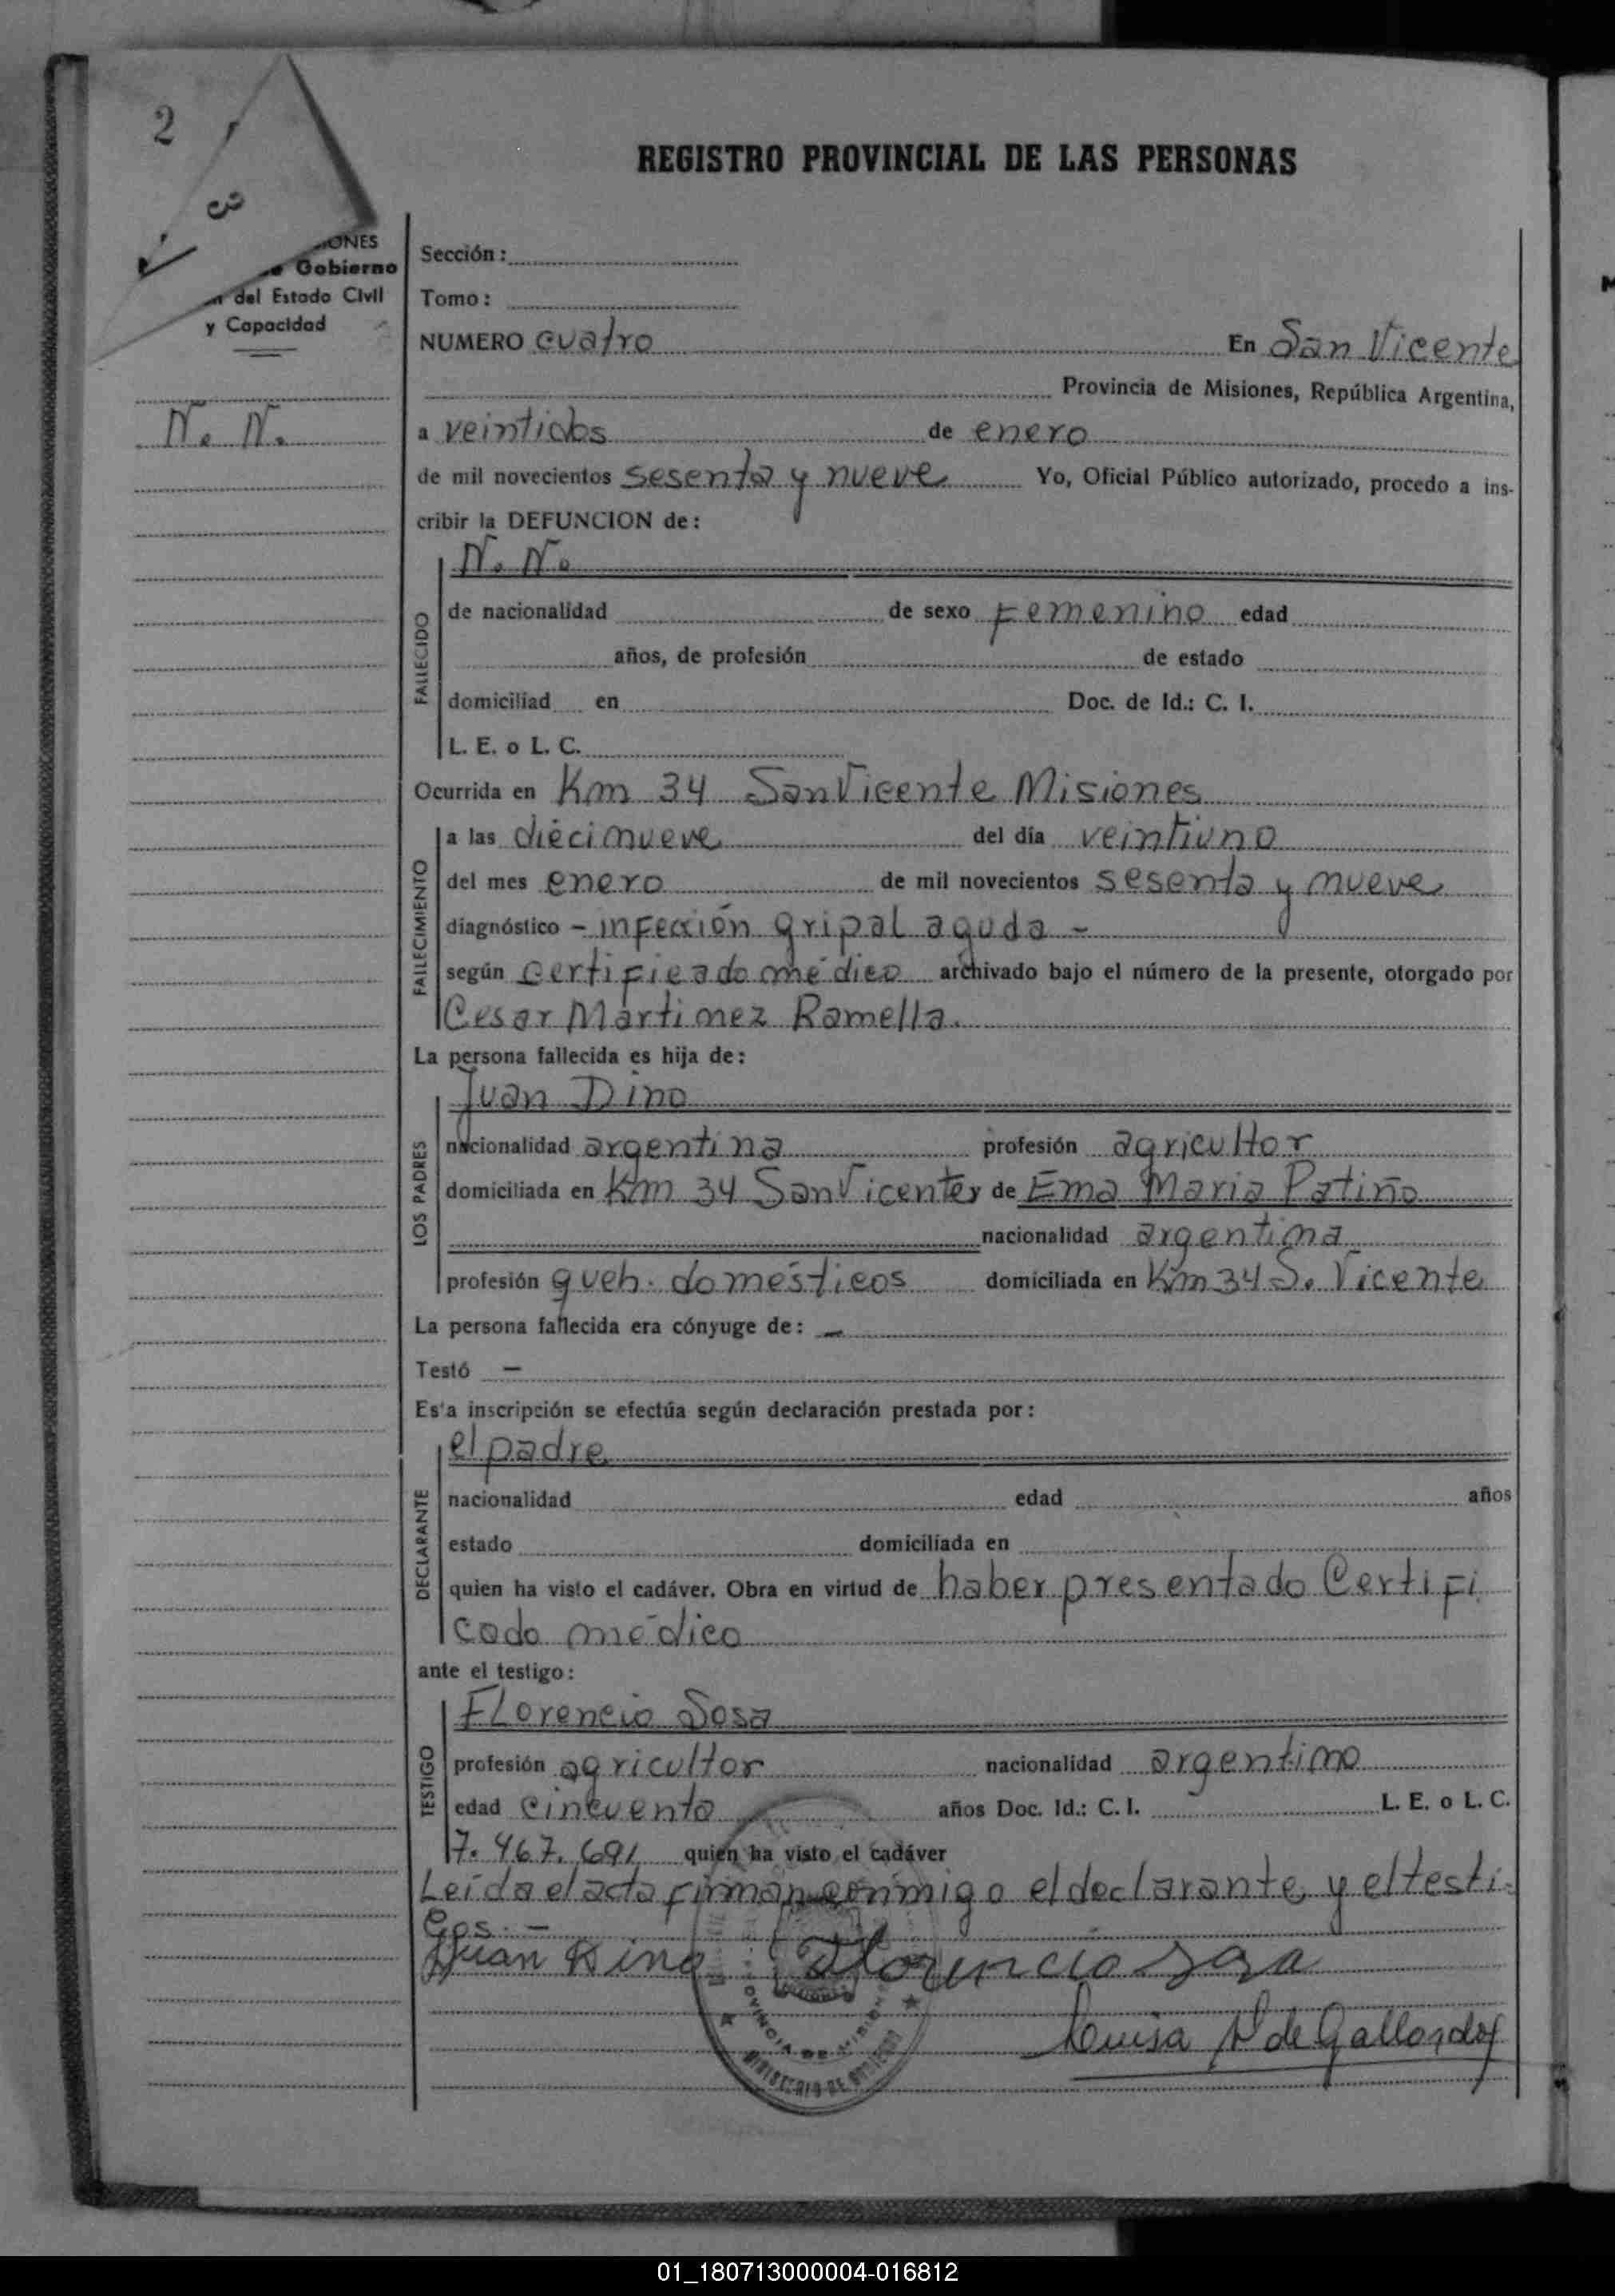 2
3
REGISTRO PROVINCIAL DE LAS PERSONAS
ONES
Gobierno
del Estado Civil
y Capacidad
N. N.
Sección:
Tomo:
NUMERO cuatro En San Vicente
Provincia de Misiones, República Argentina,
a veintidos de enero
de mil novecientos sesenta y nueve Yo, Oficial Público autorizado, procedo a ins-
cribir la DEFUNCION de:
N. N.
FALLECIDO
de nacionalidad de sexo Femenino edad
años, de profesión de estado
domiciliad en Doc. de Id.: C. I.
L. E. o L. C.
Ocurrida en Km 34 San Vicente Misiones
FALLECIMIENTO
a las diecinueve del día veintiuno
del mes enero de mil novecientos sesenta y nueve
diagnóstico - infección gripal aguda -
según Certificado médico archivado bajo el número de la presente, otorgado por
Cesar Martinez Ramella.
La persona fallecida es hija de:
LOS PADRES
Juan Dino
nacionalidad argentina profesión agricultor
domiciliada en Km 34 San Vicente y de Ema Maria Patiño
nacionalidad argentina
profesión queh. domésticos domiciliada en Km 34 S. Vicente
La persona fallecida era cónyuge de: -
Testó -
Es'a inscripción se efectúa según declaración prestada por:
DECLARANTE
el padre
nacionalidad edad años
estado domiciliada en
quien ha visto el cadáver. Obra en virtud de haber presentado Certifi
cado médico
ante el testigo:
TESTIGO
Florencio Sosa
profesión agricultor nacionalidad argentino
edad cincuenta años Doc. Id.: C. I. L. E. o L. C.
7.467.691 quien ha visto el cadáver
Leída el acta firman conmigo el declarante y el testi
gos. -
Juan Dino Florencio Sosa
Luisa de Gallardo
MINISTERIO DE GOBIERNO
PROVINCIA DE MISIONES
01_180713000004-016812